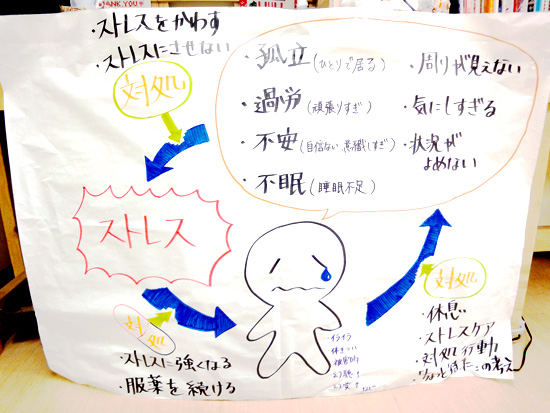 THANK YOU
・ストレスをかわす
・ストレスにさせない
対処
・孤立(ひとりで居る)
・過労(頑張りすぎ)
・不安(自信ない 意識しすぎ)
・不眠(睡眠不足)
・周りが見えない
・気にしすぎる
・状況が
よめない
ストレス
対処
・ストレスに強くなる
・服薬を続ける
イライラ
対処
・休息
・ストレスケア
・対処行動